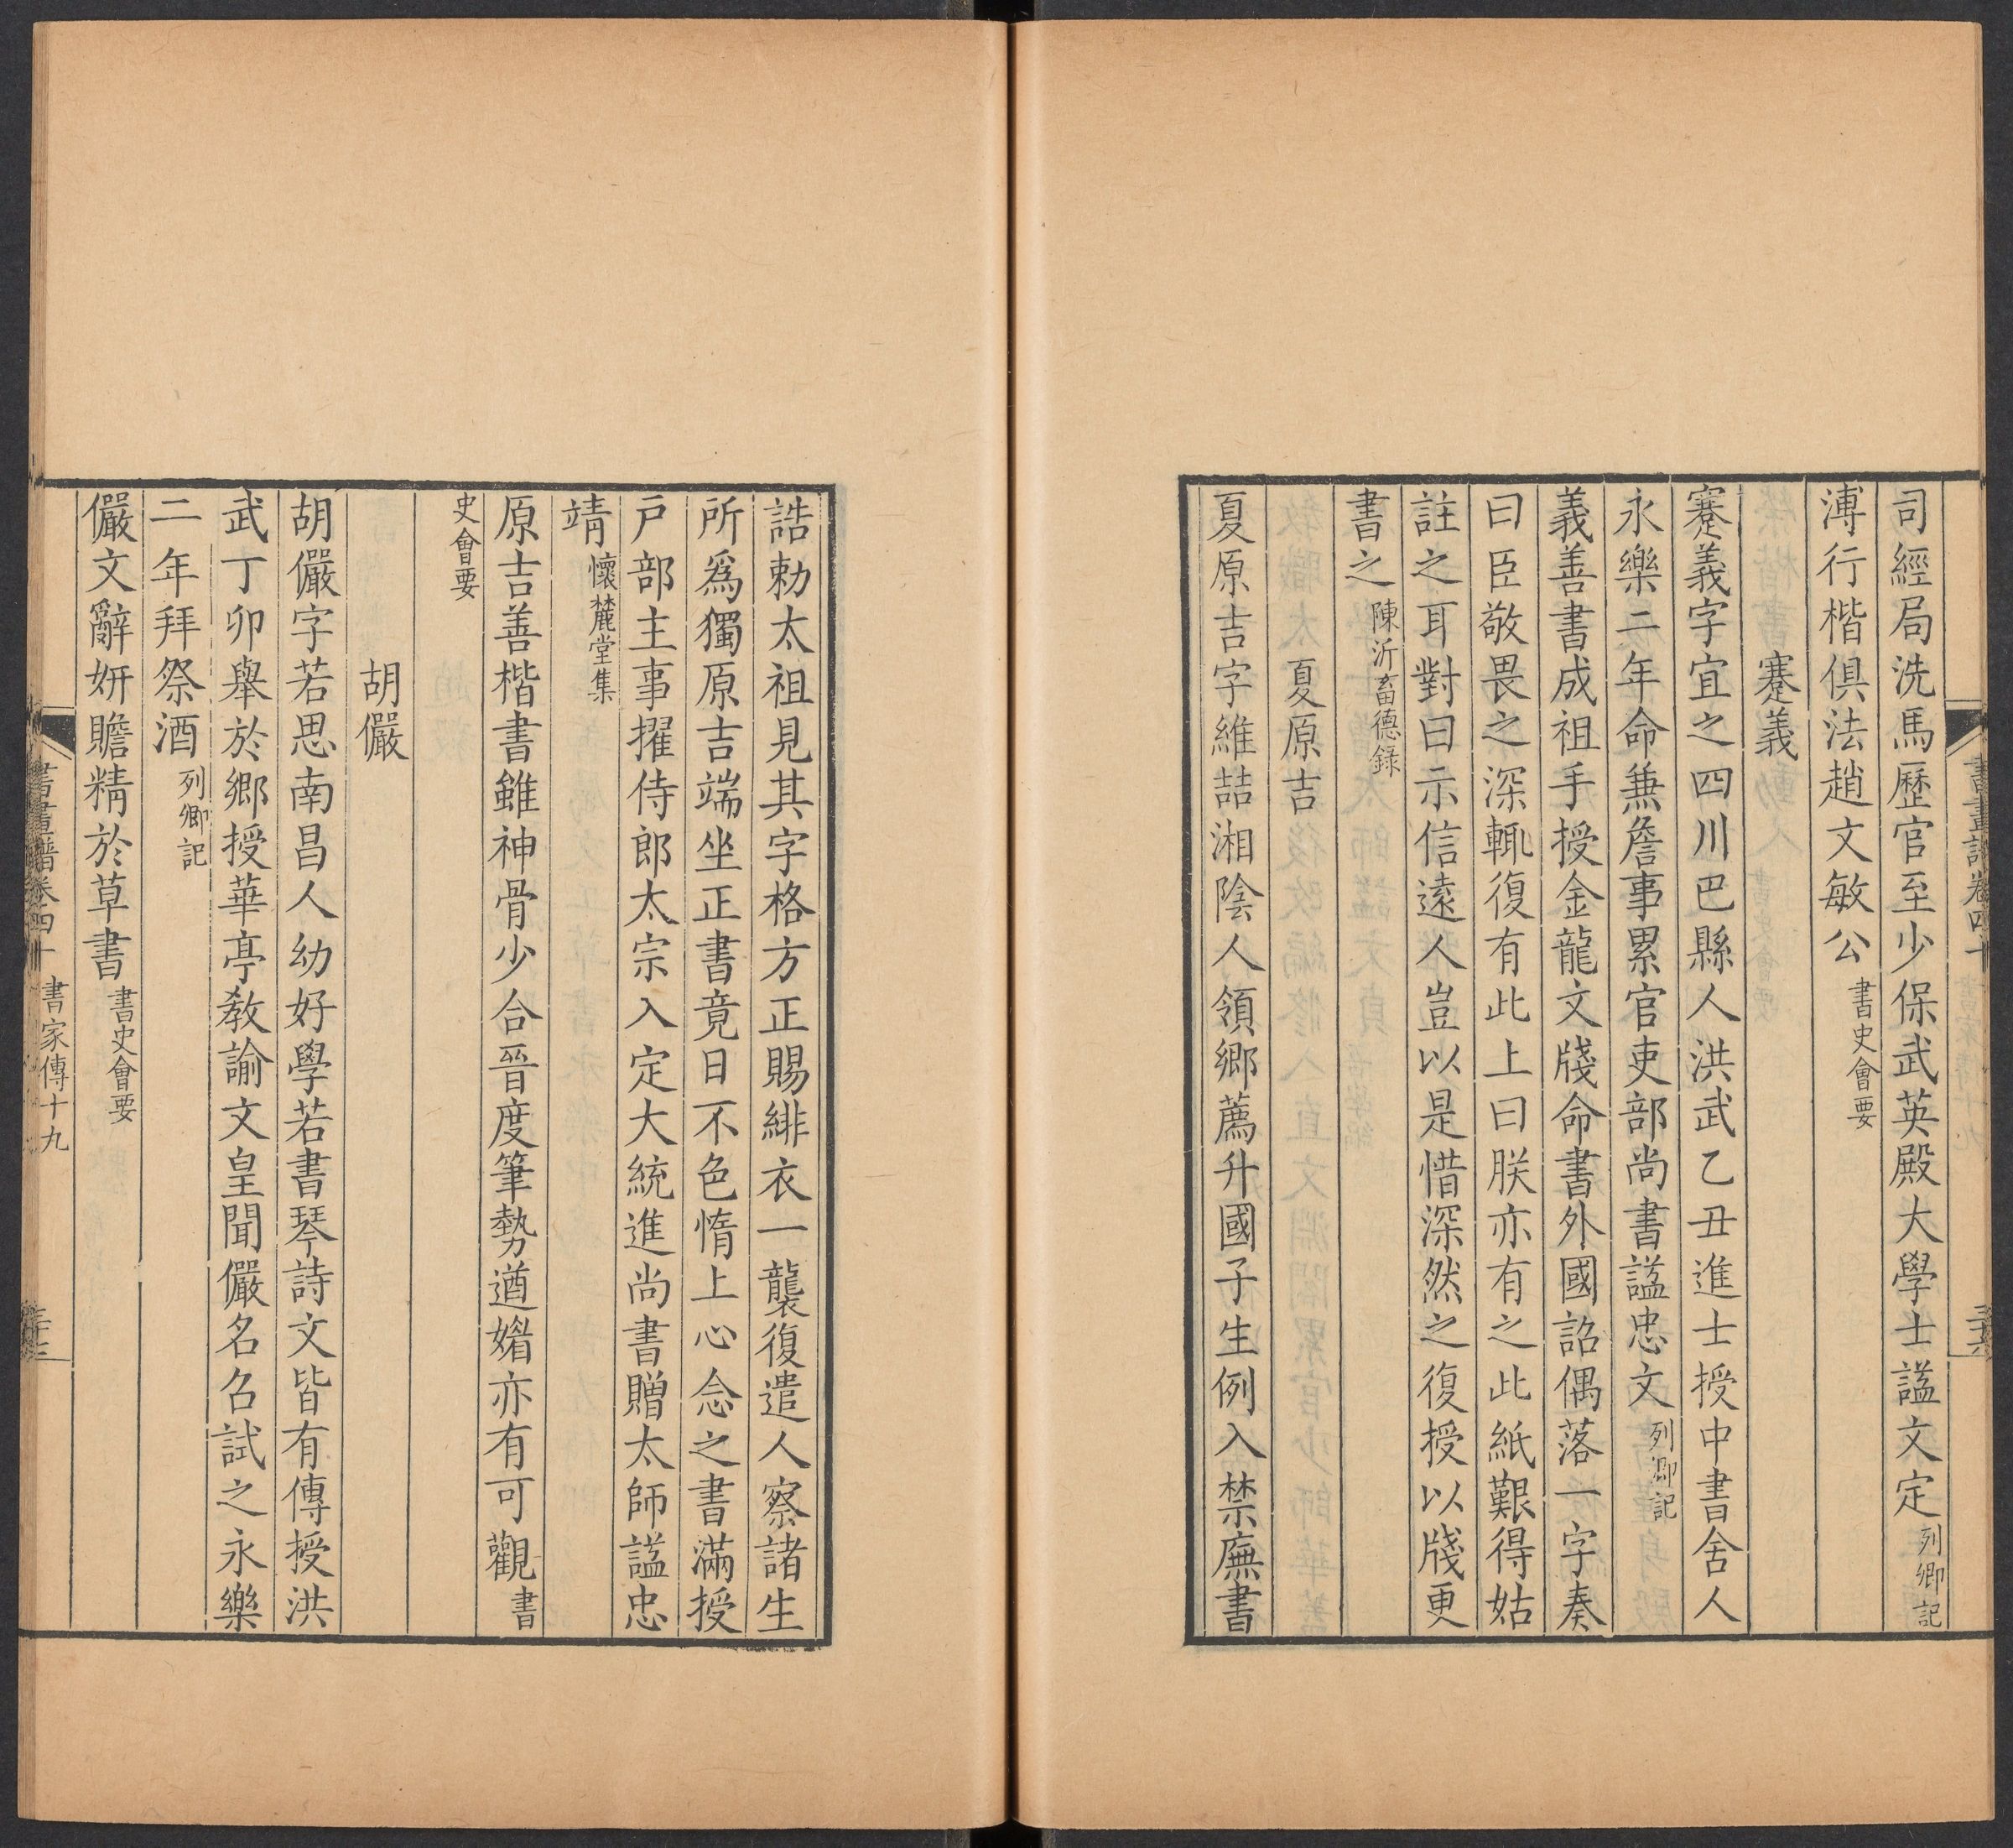 司經局洗馬歷官至少保武英殿大學士諡文定列卿記
溥行楷俱法趙文敏公書史會要
蹇義
蹇義字宜之四川巴縣人洪武乙丑進士授中書舍人
永樂二年命兼詹事累官吏部尚書諡忠文列卿記
義善書成祖手授金龍文牋命書外國詔偶落一字奏
曰臣敬畏之深輒復有此上曰朕亦有之此紙艱得姑
註之耳對曰示信遠人豈以是惜深然之復授以牋更
書之陳沂畜德錄
夏原吉
夏原吉字維喆湘陰人領鄉薦升國子生例入禁廡書
誥勅太祖見其字格方正賜緋衣一襲復遣人察諸生
所爲獨原吉端坐正書竟日不色惰上心念之書滿授
戸部主事擢侍郎太宗入定大統進尚書贈太師諡忠
靖懷麓堂集
原吉善楷書雖神骨少合晉度筆勢遒媚亦有可觀書
史會要
胡儼
胡儼字若思南昌人幼好學若書琴詩文皆有傳授洪
武丁卯舉於鄉授華亭教諭文皇聞儼名召試之永樂
二年拜祭酒列卿記
儼文辭妍贍精於草書書史會要
書畫譜卷四十 書家傳十九